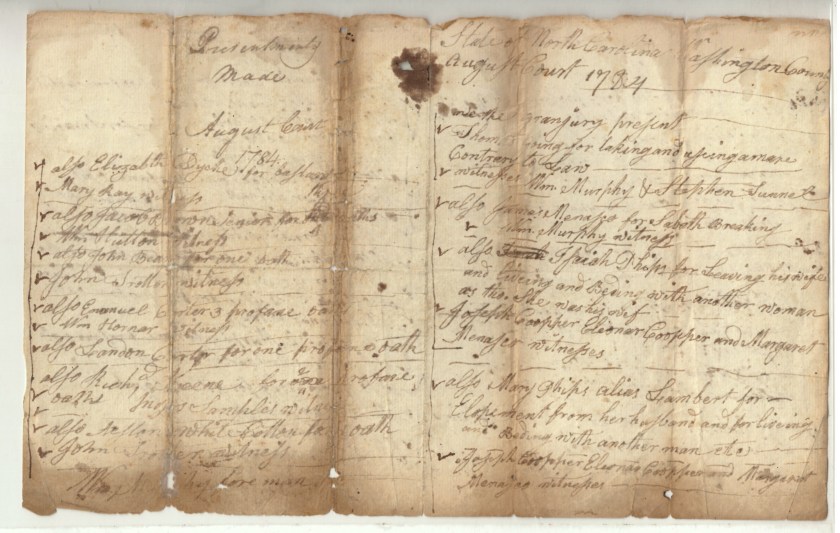 Presentments
Made
August Court
1784
also Elizabeth Dyche for bastard
Mary Kay witness
also Jacob Brown Senior for oaths
Wm Hutton witness
also John for one oath
John witness
also Emanuel Carter 3 profane oaths
Wm Horner witness
also Landon Carter for one profane oath
also Richd Greene for one profane
oaths witness
also white for oath
John witness
foreman
State of North Carolina Washington County
August Court 1784
we the granjury present
Thoms for taking and useing a mare
Contrary to Law
witnesses Wm Murphy & Stephen
also James Menasco for Saboth Breaking
Wm Murphy witness
also Isaiah Phips for Leaving his wife
and liveing and Beding with another woman
as tho She was his wif
Joseph Coopper Eleonar Coopper and Margaret
Menasco witnesses
also Mary Phips alias Lambert for
Elopement from her husband and for liveing
and Beding with another man etc
Joseph Coopper Eleonar Coopper and Margaret
Menasco witnesses